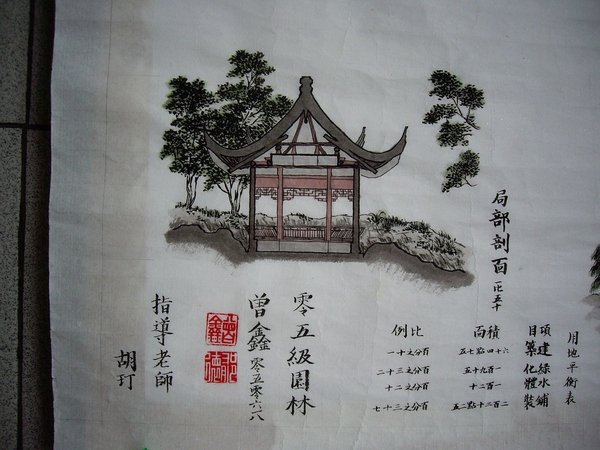 局部剖面 一比五十
用地平衡表
項目 面積 比例
建築 六十四點七五 百分之十一
綠化 一百九十五 百分之三十二
水體 一百二十 百分之二十
鋪裝 二百二十點二五 百分之三十七
零五級園林
曾鑫 零五零六八
指導老師
胡玎